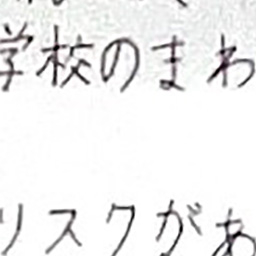 学校のまわ
リスクがあ